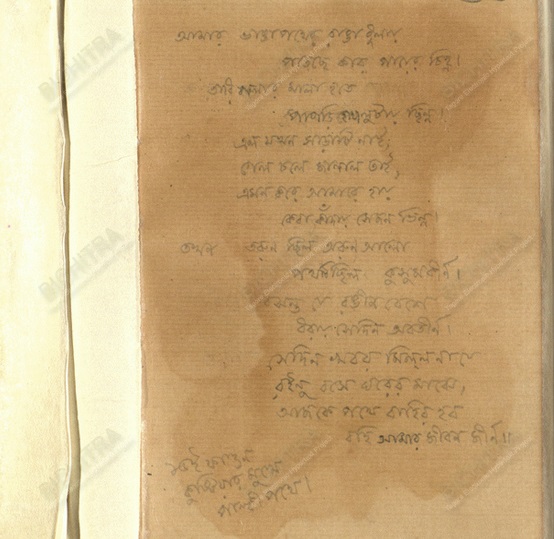 আমার ভাঙা পথের রাঙা ধুলায়
পড়েছে কার পায়ের চিহ্ন।
তারি গলার মালা হতে
পাপড়ি হোথা লুটায় ছিন্ন।
এল যখন সাড়াটি নাই,
গেল চলে জানালো তাই,
এমন করে আমারে হায়
কেবা কাঁদায় সেজন ভিন্ন।
তখন তরুণ ছিল অরুণ আলো
পথটি ছিল কুসুমকীর্ণ।
বসন্ত যে রঙীন বেশে
ধরায় সেদিন অবতীর্ণ।
সেদিন খবর মিলল না যে
রইনু বসে ঘরের মাঝে,
আজকে পথে বাহির হব
বহি আমার জীবন জীর্ণ॥
পথে।
BICHITRA